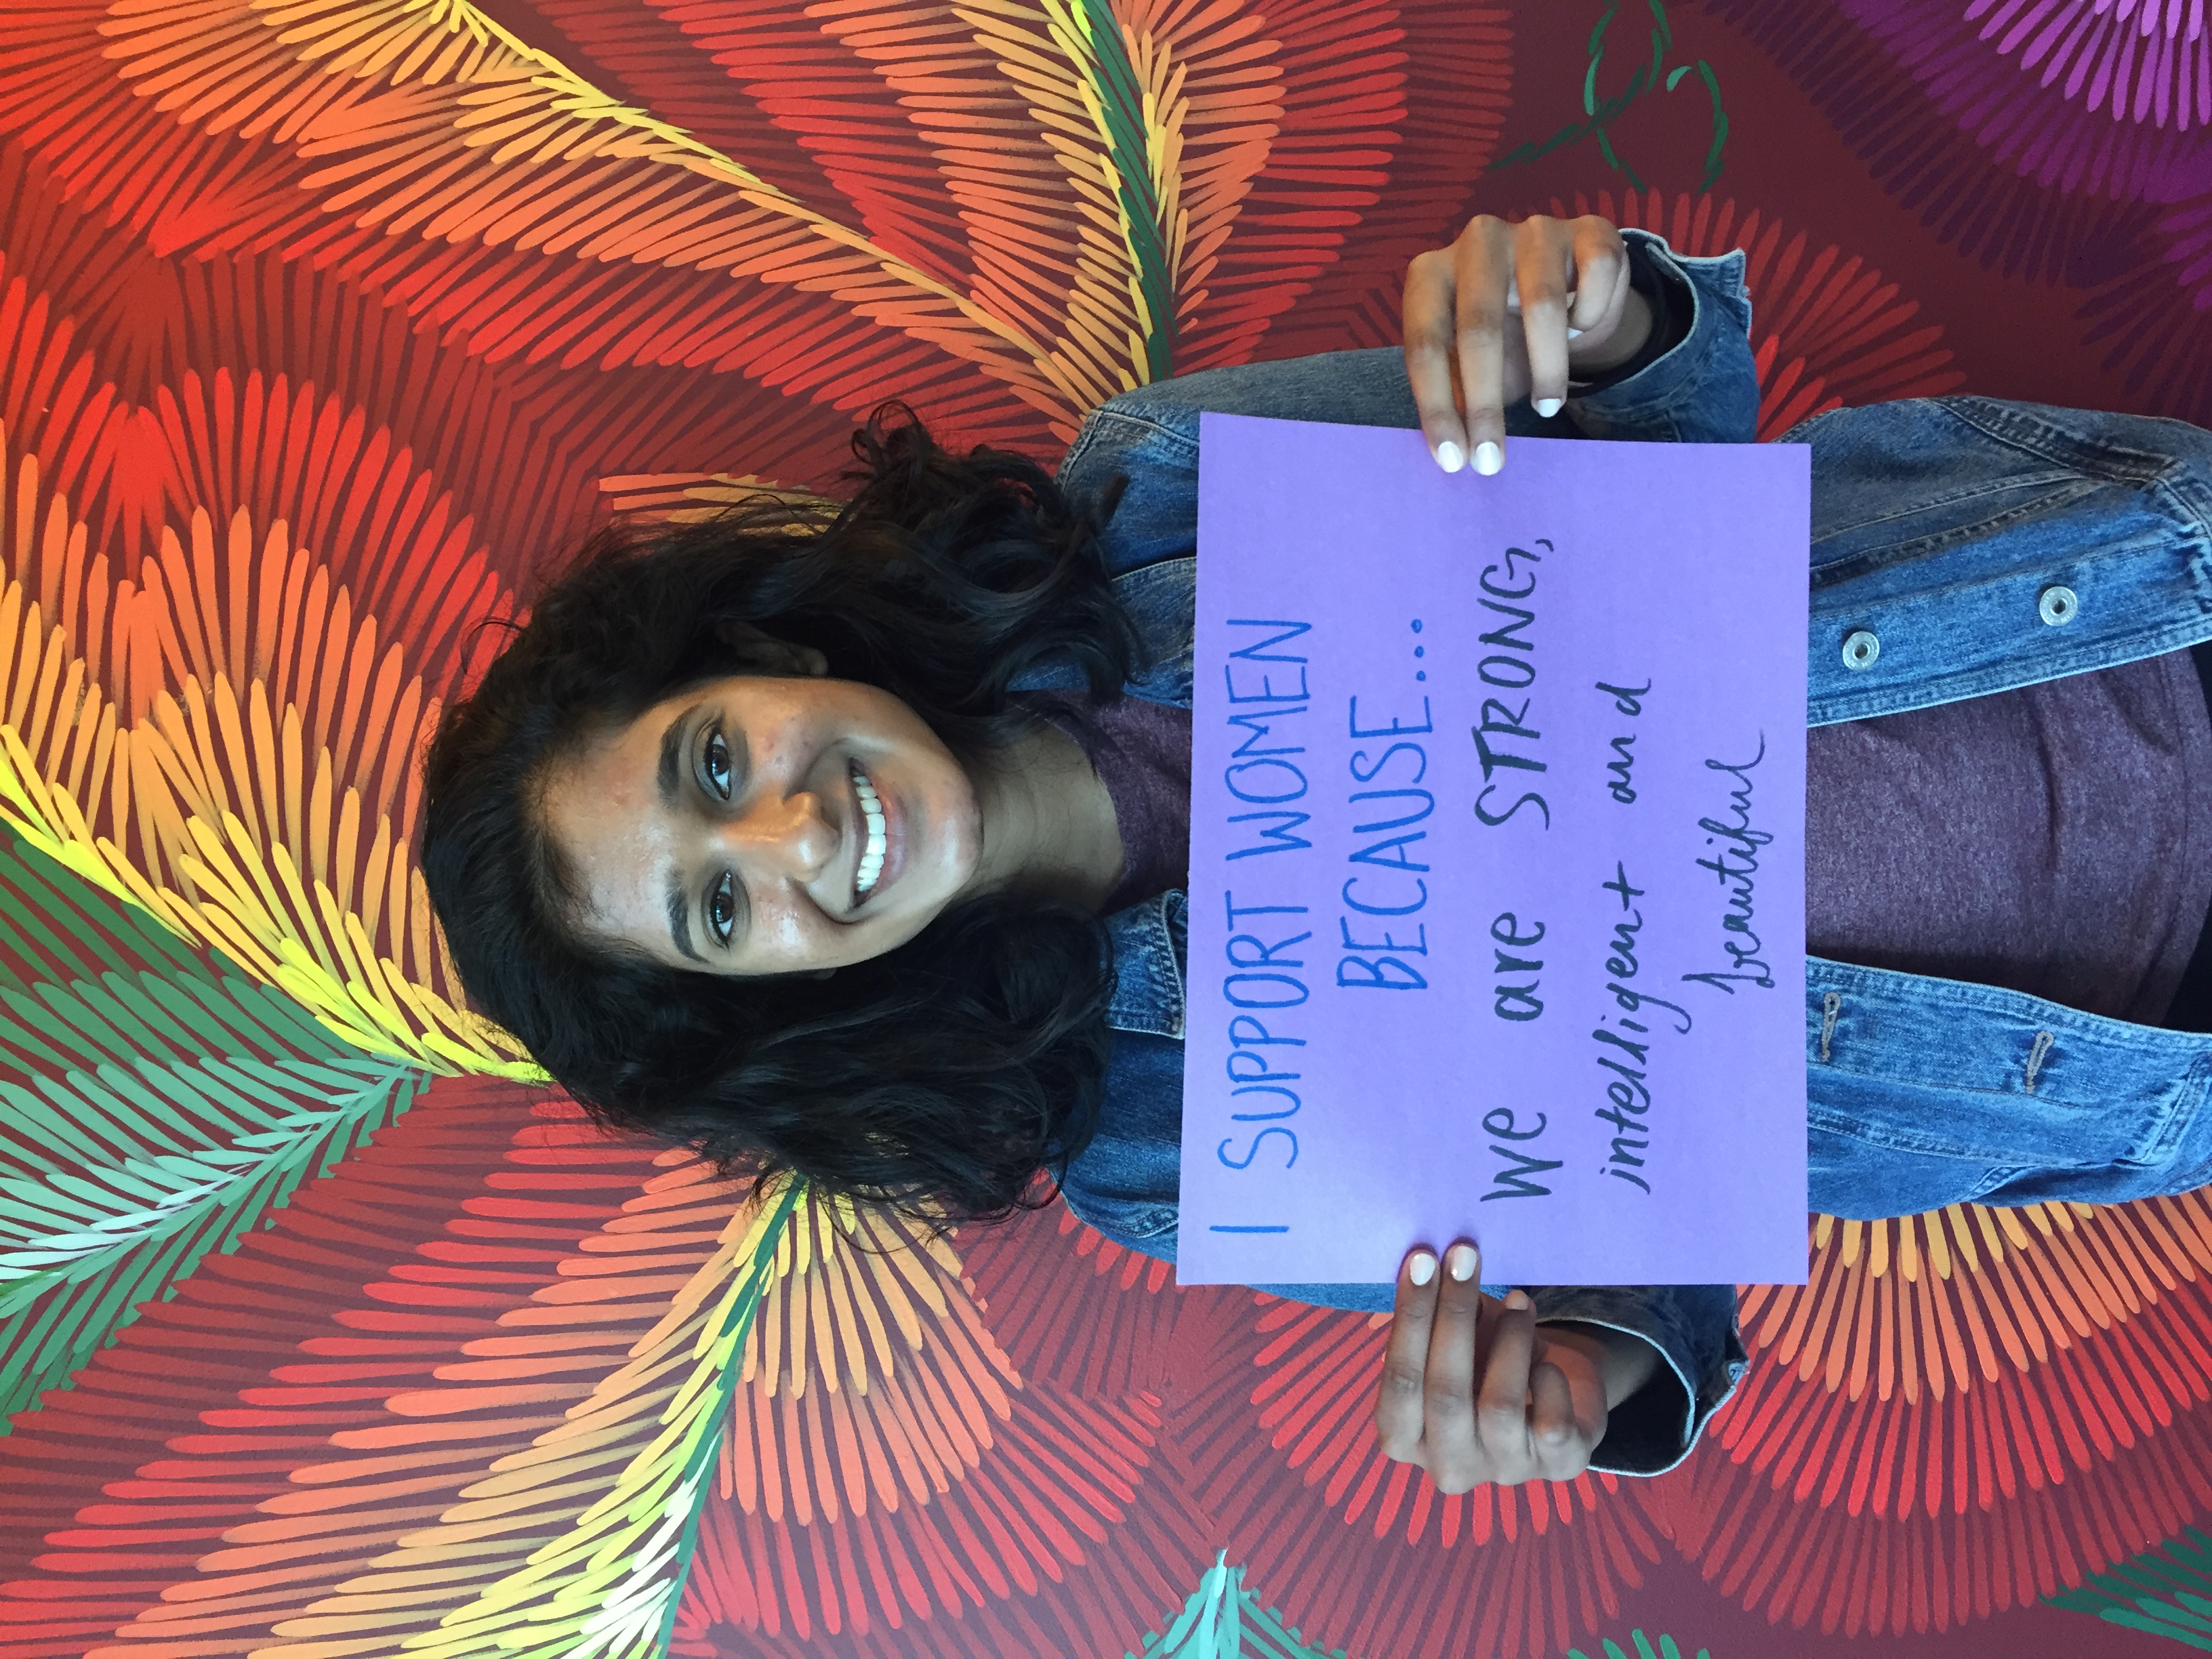 I SUPPORT WOMEN
BECAUSE...
We are STRONG,
intelligent and
beautiful